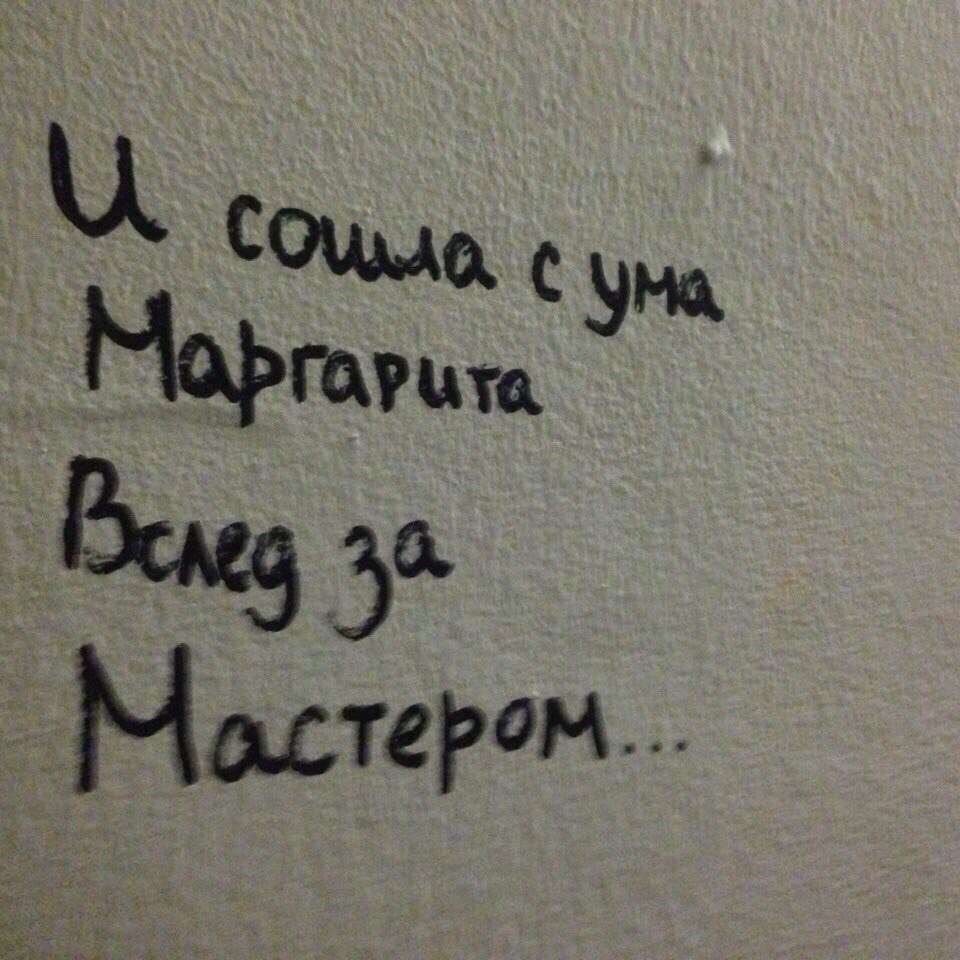 И сошла с ума
Маргарита
Вслед за
Мастером...